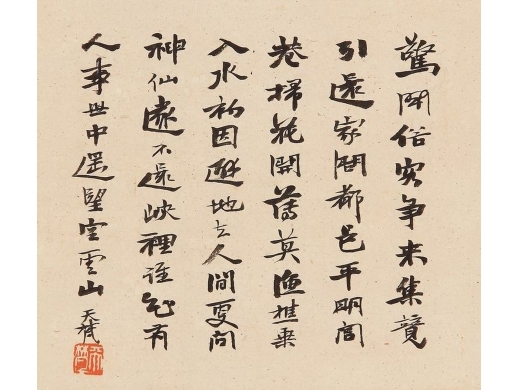 驚聞俗客爭來集競
引還家問都邑平明閭
巷掃花開薄莫漁樵乘
入水初因避地去人間更問
神仙遂不還峽裡誰知有
人事世中遙望空雲山